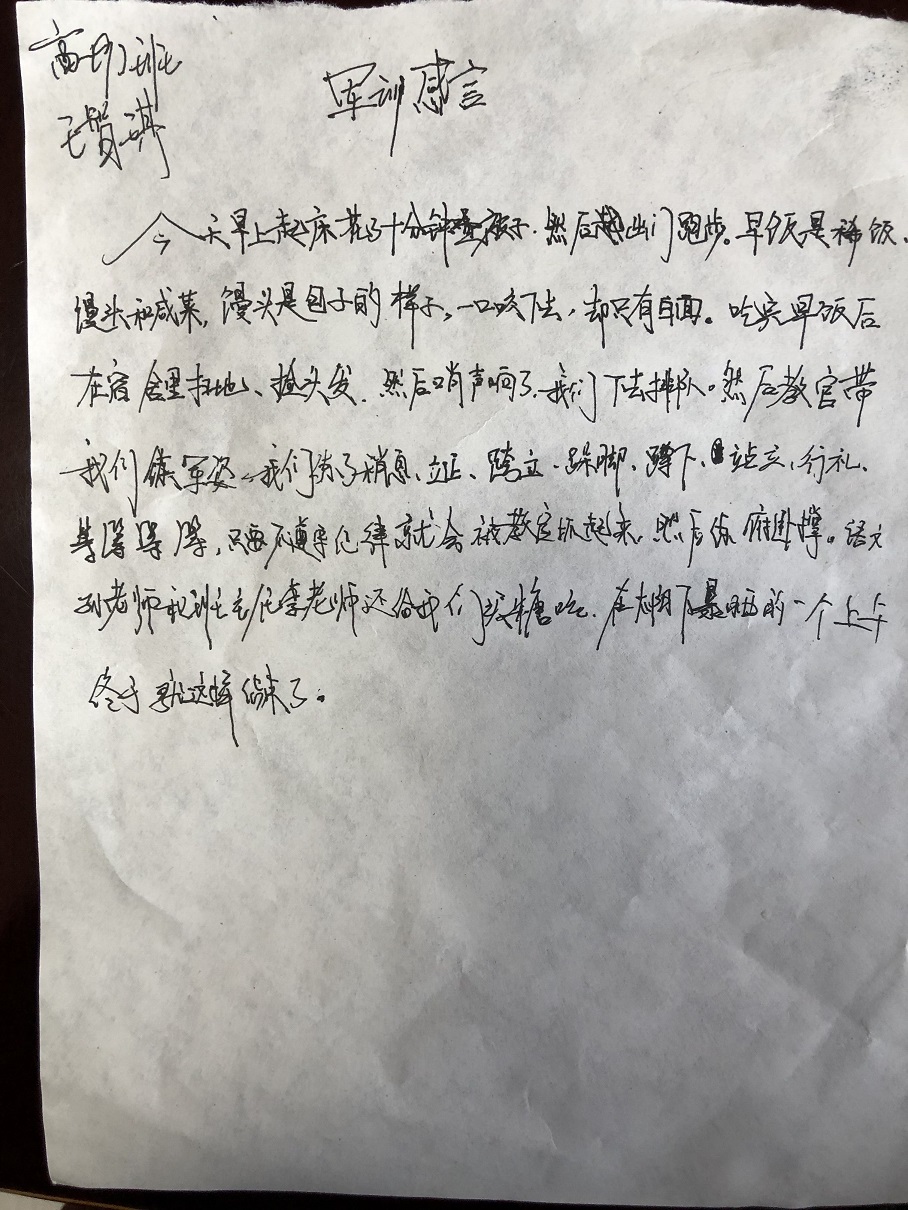 高切班
军训感言
王贤琪
今天早上起床花了十分钟叠被子.然后出门跑步。早饭是稀饭、
馒头和咸菜,馒头是包子的样子,一口咬下去,却只有白面。吃完早饭后
在宿舍里扫地、捡头发.然后哨声响了.我们下去排队。然后教官带
我们练军姿、我们练了稍息、立正、跨立、跺脚、蹲下、站立、行礼、
等等等等,只要不遵守纪律就会被教官抓起来,然后做俯卧撑。语文
孙老师和班主任李老师还给我们发糖吃.在太阳下暴晒的一个上午
终于就这样结束了。